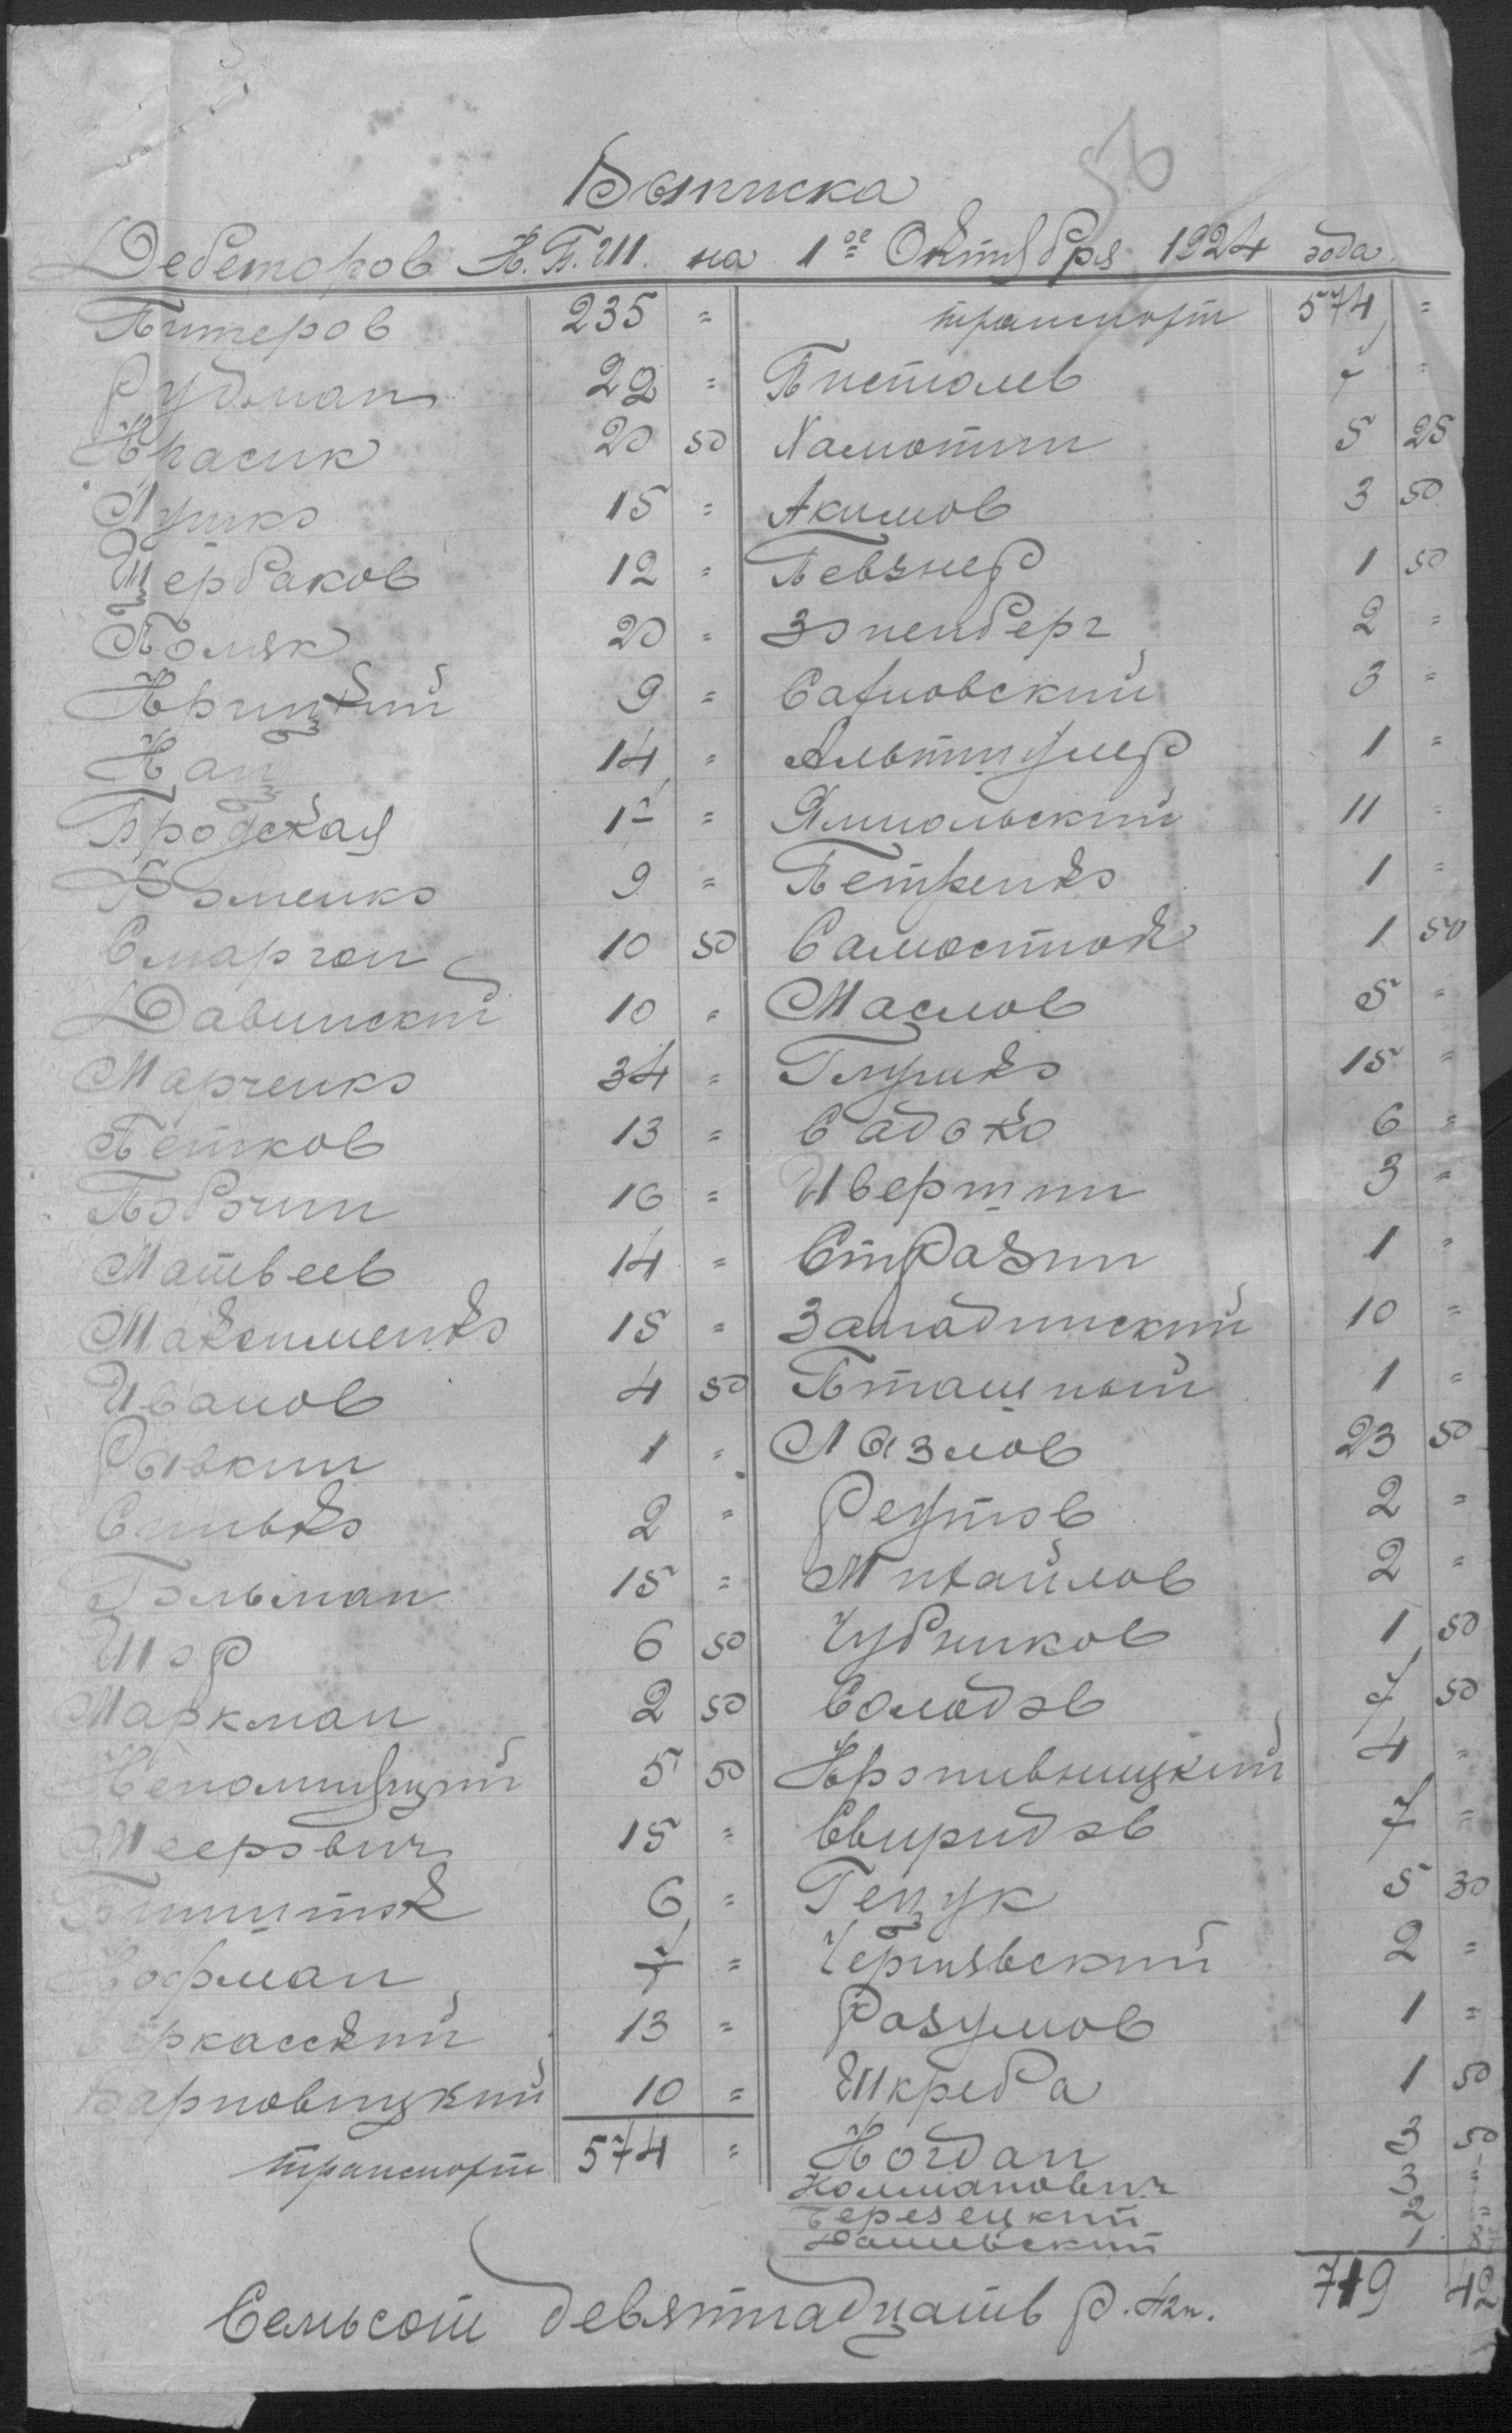 56
Выписка
Дебеторов К.Б.Ш. на 1ое Октября 1924 года.
Питеров 235 =
Рудман 22 =
Красик 20 50
Лушко 15 =
Щербаков 12 =
Поляк 20 =
Крицкий 9 =
Кац 14 =
Бродская 17 =
Фоменко 9 =
Смаргон 10 50
Давинский 10 =
Марченко 34 =
Петков 13 =
Побочин 16 =
Матвеев 14 =
Максименко 15 =
Иванов 4 50
Рывкин 1 =
Синько 2 =
Гольман 15 =
Шор 6 50
Маркман 2 50
Непомнящий 5 50
Меерович 15 =
6 =
Кофман 7 =
Черкасский 13 =
Барновицкий 10 =
транспорт 574 =
транспорт 574 =
Пистолев 7 =
Хамотин 5 25
Акимов 3 50
Певзнер 1 50
Зоненберг 2 =
Сахновский 3 =
Альтшулер 1 =
Ямпольский 11 =
Петренко 1 =
Самосток 1 50
Маслов 5 =
Глушко 15 =
Садоко 6 =
Ивершин 3 =
Стразин 1 =
Западинский 10 =
Пташный 1 =
Лазлов 23 50
Реутов 2 =
Михайлов 2 =
Чубников 1 50
Солодов 7 50
Кропивницкий 4 =
Свиридов 7 =
Гецук 5 30
Чернявский 2 =
Разумов 1 =
Шкреба 1 50
Когдан 3 50
Колманович 3 =
Березецкий 2 =
Дашевский 1
719 42
Семьсот девятнадцать р. 42к.